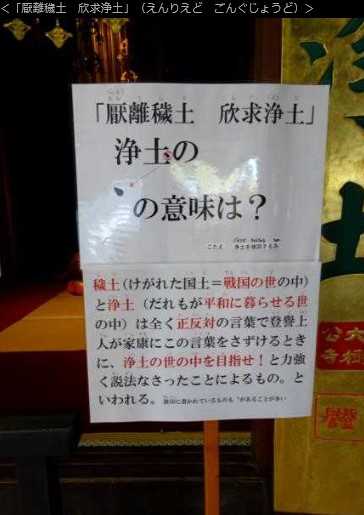 ＜「厭離穢土　欣求浄土」（えんりえど　ごんぐじょうど）＞
「厭離穢土　欣求浄土」
浄土の
の意味は？
穢土（けがれた国土＝戦国の世の中）
と浄土（だれもが平和に暮らせる世
の中）は全く正反対の言葉で登誉上
人が家康にこの言葉をさずけるとき
に、浄土の世の中を目指せ！と力強
く説法なさったことによるもの。と
いわれる。